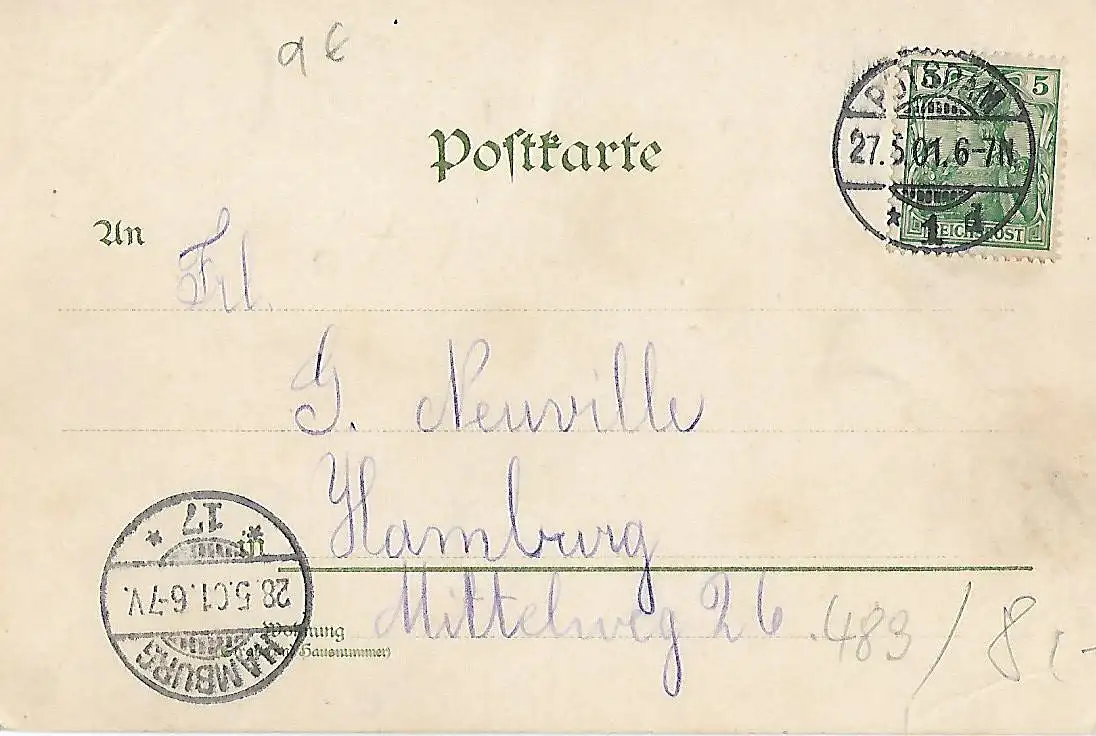 a €
Postkarte
5 5
POTSDAM
27.5.01.6-7N.
* 1 d
REICHSPOST
An
Frl.
G. Neuville
Hamburg
in
Mittelweg 26
Wohnung
(Straße und Hausnummer)
HAMBURG
28.5.01.6-7V.
* 17 *
483 / 8